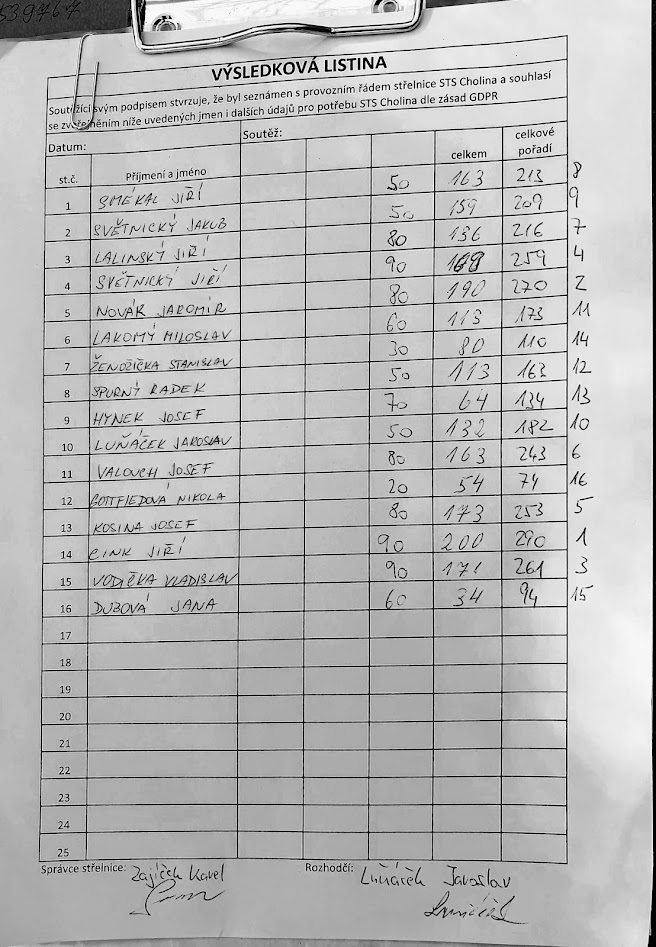 539767
VÝSLEDKOVÁ LISTINA
Soutěžící svým podpisem stvrzuje, že byl seznámen s provozním řádem střelnice STS Cholina a souhlasí
se zveřejněním níže uvedených jmen i dalších údajů pro potřebu STS Cholina dle zásad GDPR
Datum: Soutěž:
st.č. Příjmení a jméno celkem celkové pořadí
1 SMÉKAL JIŘÍ 50 163 213 8
2 SVĚTNICKÝ JAKUB 50 159 209 9
3 LALINSKÝ JIŘÍ 80 136 216 7
4 SVĚTNICKÝ JIŘÍ 90 259 4
5 NOVÁK JAROMÍR 80 190 270 2
6 LAKOMÝ MILOSLAV 60 113 173 11
7 ŽENOŽIČKA STANISLAV 30 80 110 14
8 SPURNÝ RADEK 50 113 163 12
9 HYNEK JOSEF 70 64 134 13
10 LUŇÁČEK JAROSLAV 50 132 182 10
11 VALOUCH JOSEF 80 163 243 6
12 GOTTFIEDOVÁ NIKOLA 20 54 74 16
13 KOSINA JOSEF 80 173 253 5
14 CINK JIŘÍ 90 200 290 1
15 VODIČKA VLADISLAV 90 171 261 3
16 DUBOVÁ JANA 60 34 94 15
17
18
19
20
21
22
23
24
25
Správce střelnice: Zajíček Karel Rozhodčí: Luňáček Jaroslav